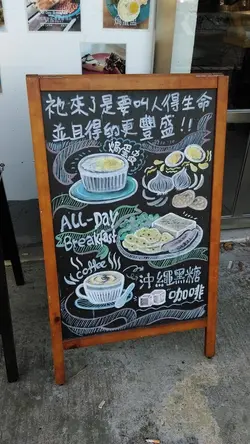 祂來了是要叫人得生命
並且得的更豐盛!!
焗蛋盅
ALL-DAY
Breakfast
Coffee
沖繩黑糖
咖啡